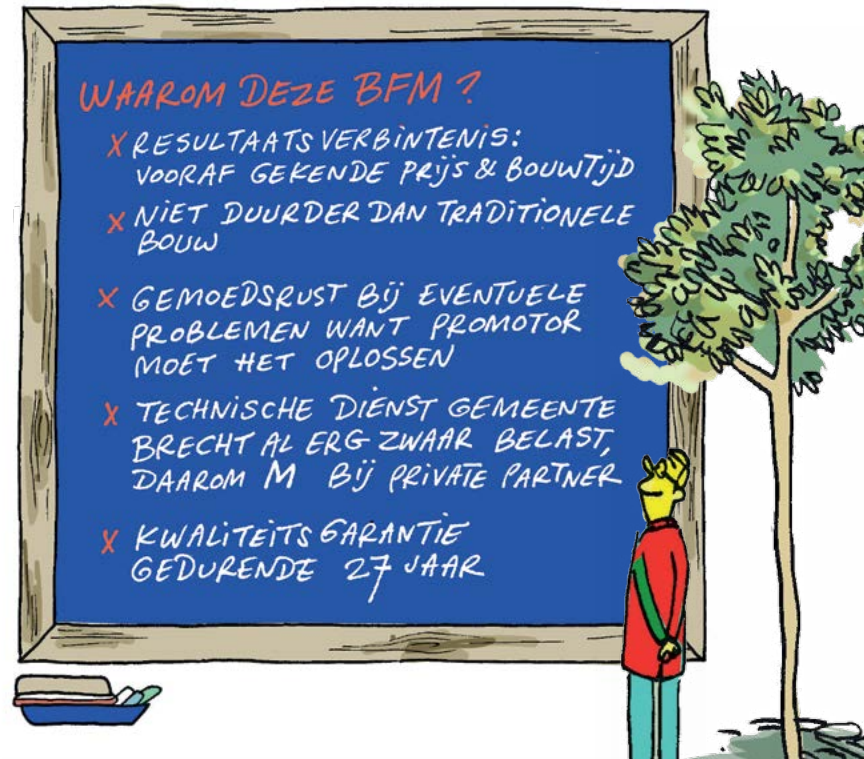 WAAROM DEZE BFM ?
X RESULTAATSVERBINTENIS:
VOORAF GEKENDE PRIJS & BOUWTIJD
X NIET DUURDER DAN TRADITIONELE
BOUW
X GEMOEDSRUST BIJ EVENTUELE
PROBLEMEN WANT PROMOTOR
MOET HET OPLOSSEN
X TECHNISCHE DIENST GEMEENTE
BRECHT AL ERG ZWAAR BELAST,
DAAROM M BIJ PRIVATE PARTNER
X KWALITEITSGARANTIE
GEDURENDE 27 JAAR